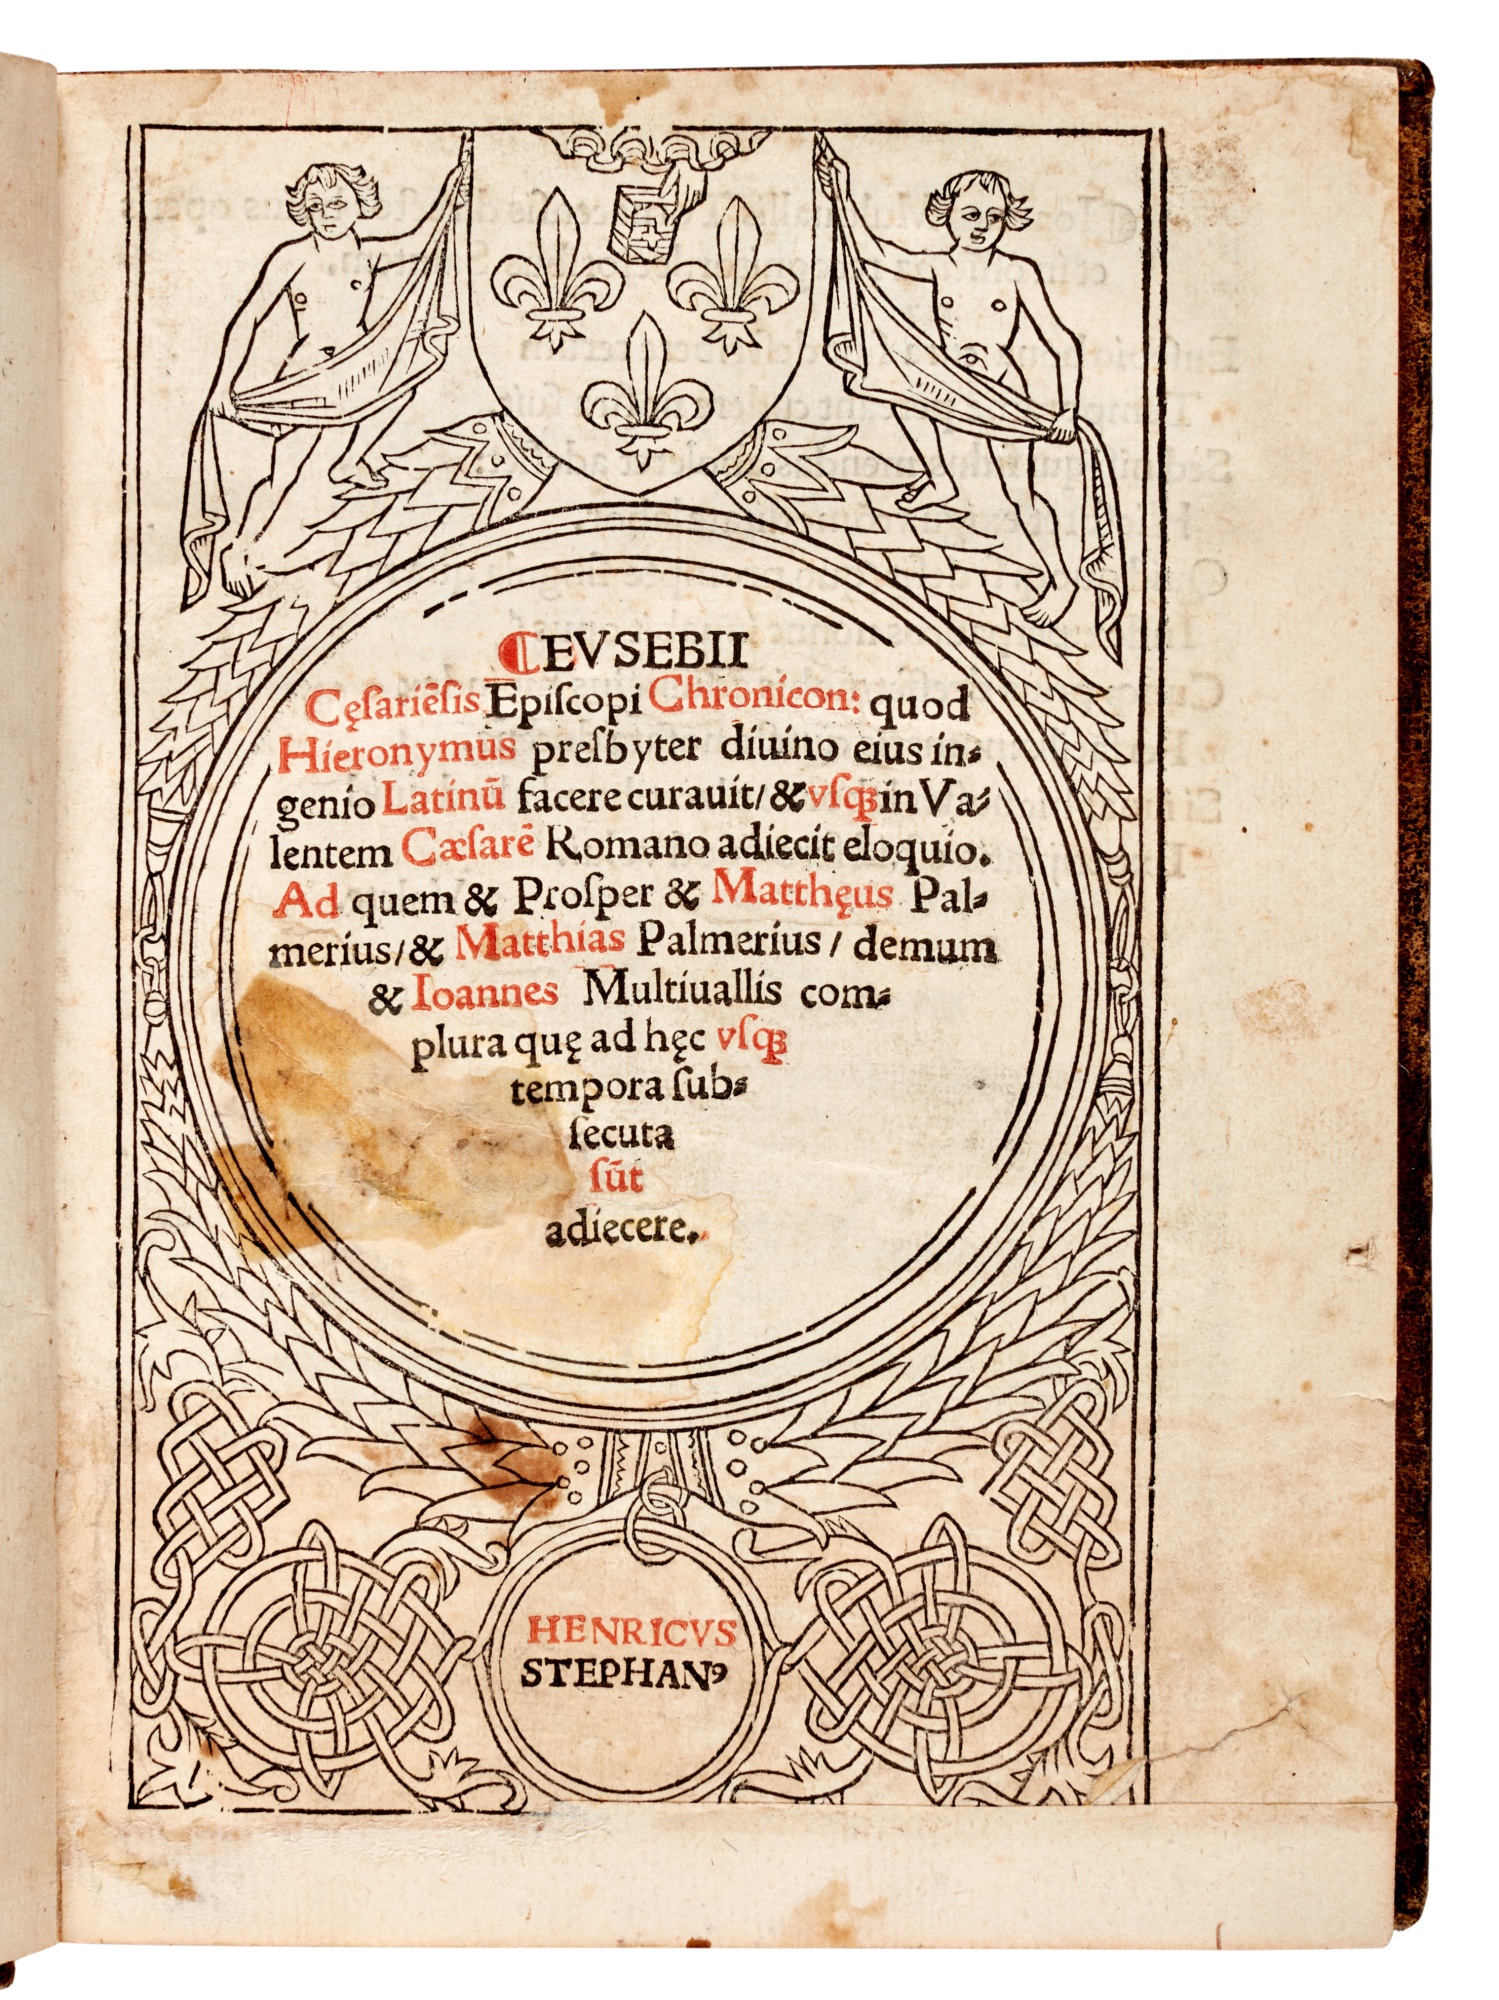 ¶EVSEBII
Cęſariēſis Epiſcopi Chronicon: quod
Hieronymus preſbyter diuino eius in⸗
genio Latinū facere curauit/ & vſqꝫ in Va⸗
lentem Cæſarē Romano adiecit eloquio.
Ad quem & Proſper & Matthęus Pal⸗
merius/ & Matthias Palmerius / demum
& Ioannes Multiuallis com⸗
plura quę ad hęc vſqꝫ
tempora ſub⸗
ſecuta
ſūt
adiecere.
HENRICVS
STEPHANꝰ